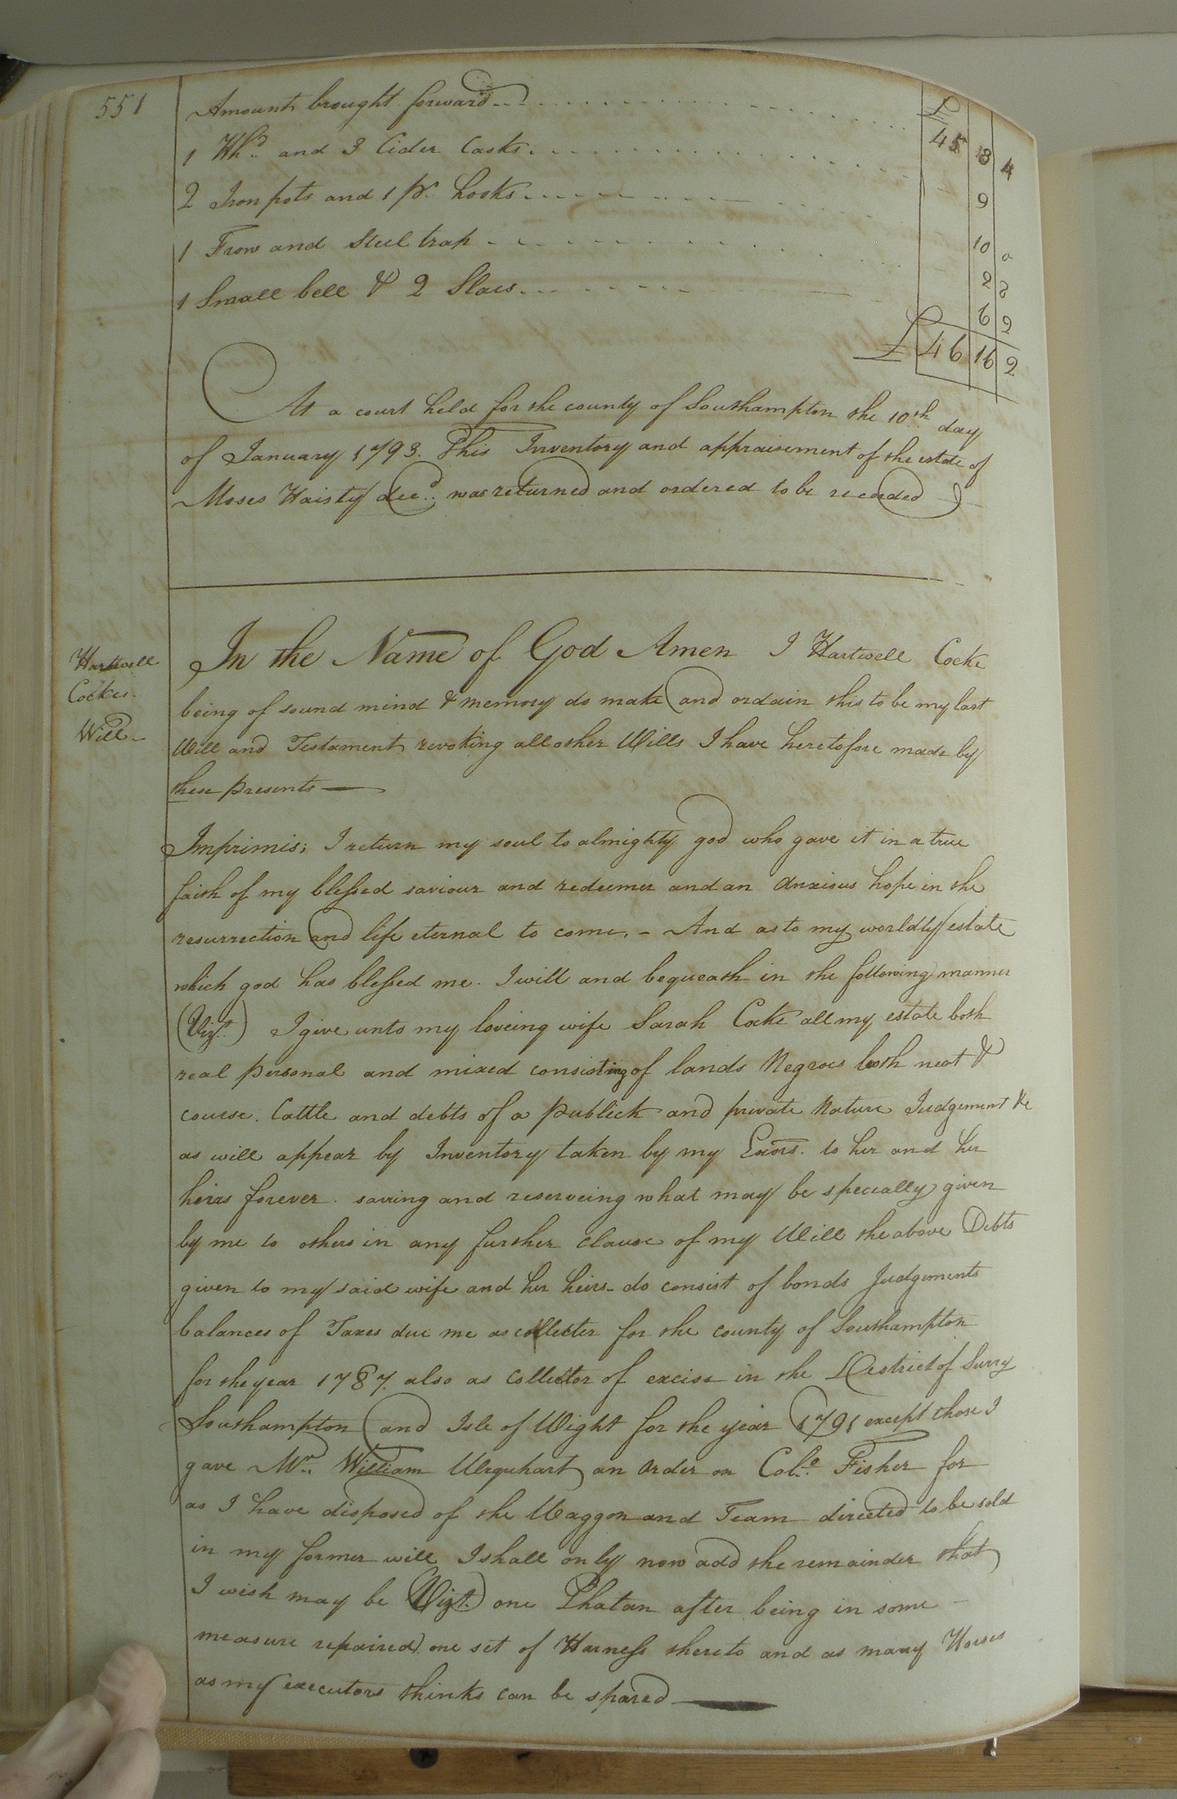 551
Amount brought forward £ 45 13 4
1 Whd. and 3 Cider Casks 9
2 Iron pots and 1 pr. hooks 10 0
1 Frow and Steel trap 2 8
1 Small bell & 2 Slaes 6 2
£ 46 16 2
At a court held for the county of Southampton the 10th day
of January 1793. This Inventory and appraisement of the estate of
Moses Haisty decd. was returned and ordered to be recorded
Hartwell
Cockes
Will
In the Name of God Amen I Hartwell Cocke
being of sound mind & memory do make and ordain this to be my last
Will and Testament revoking all other Wills I have heretofore made by
these presents
Imprimis; I return my soul to almighty god who gave it in a true
faith of my blessed saviour and redeemer and an anxious hope in the
resurrection and life eternal to come. - And as to my worldly estate
which god has blessed me. I will and bequeath in the following manner
(Vizt.) I give unto my loveing wife Sarah Cocke all my estate both
real personal and mixed consisting of lands Negroes both neat &
course. Cattle and debts of a publick and private Nature Judgement &c
as will appear by Inventory taken by my Exors. to her and her
heirs forever. saving and reserveing what may be specially given
by me to others in any further clause of my Will the above Debts
given to my said wife and her heirs do consist of bonds Judgements
balances of Taxes due me as collecter for the county of Southampton
for the year 1787. also as Collector of excise in the District of Surry
Southampton and Isle of Wight for the year 1791 except those I
gave Mr. William Urquhart an order on Colo. Fisher for
as I have disposed of the Waggon and Team directed to be sold
in my former will I shall only now add the remainder that
I wish may be (Vizt.) one Phatan after being in some
measure repaired one set of Harness thereto and as many Horses
as my executors thinks can be spared